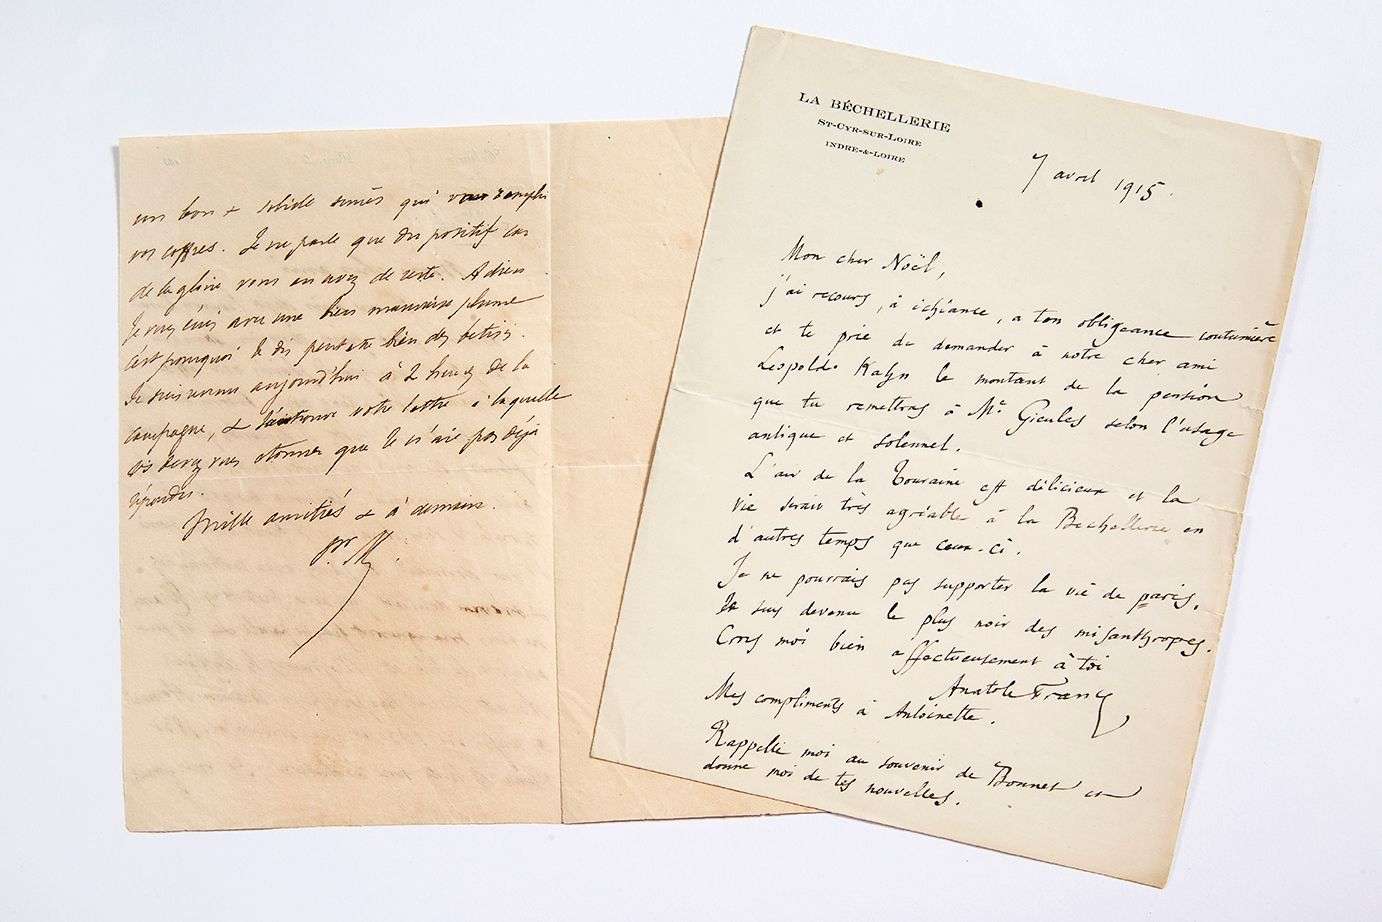 un bon & solide succès qui vous remplir
vos coffres. Je ne parle que du positif car
de la gloire vous en avez de reste. Adieu
Je vous écris avec une bien mauvaise plume
c'est pourquoi je dis peut-être bien des bêtises.
Je suis revenu aujourd'hui à 2 heures de la
campagne, & j'ai trouvé votre lettre à laquelle
vous étonner que je n'aie pas déjà
répondu.
Mille amitiés & à demain.
Pr. M
LA BÉCHELLERIE
ST-CYR-SUR-LOIRE
INDRE-&-LOIRE
7 avril 1915.
Mon cher Noël,
j'ai recours, à échéance, a ton obligeance coutumière
et te prie de demander à notre cher ami
Leopold Kahn le montant de la pension
que tu remettras à Me selon l'usage
antique et solennel.
L'air de la Touraine est délicieux et la
vie serait très agréable à la Bechellerie en
d'autres temps que ceux-ci.
Je ne pourrais pas supporter la vie de paris.
Je suis devenu le plus noir des misanthropes.
Crois moi bien affectueusement à toi
Anatole France
Mes compliments à Antoinette.
Rappelle moi au souvenir de Bonnet et
donne moi de tes nouvelles.